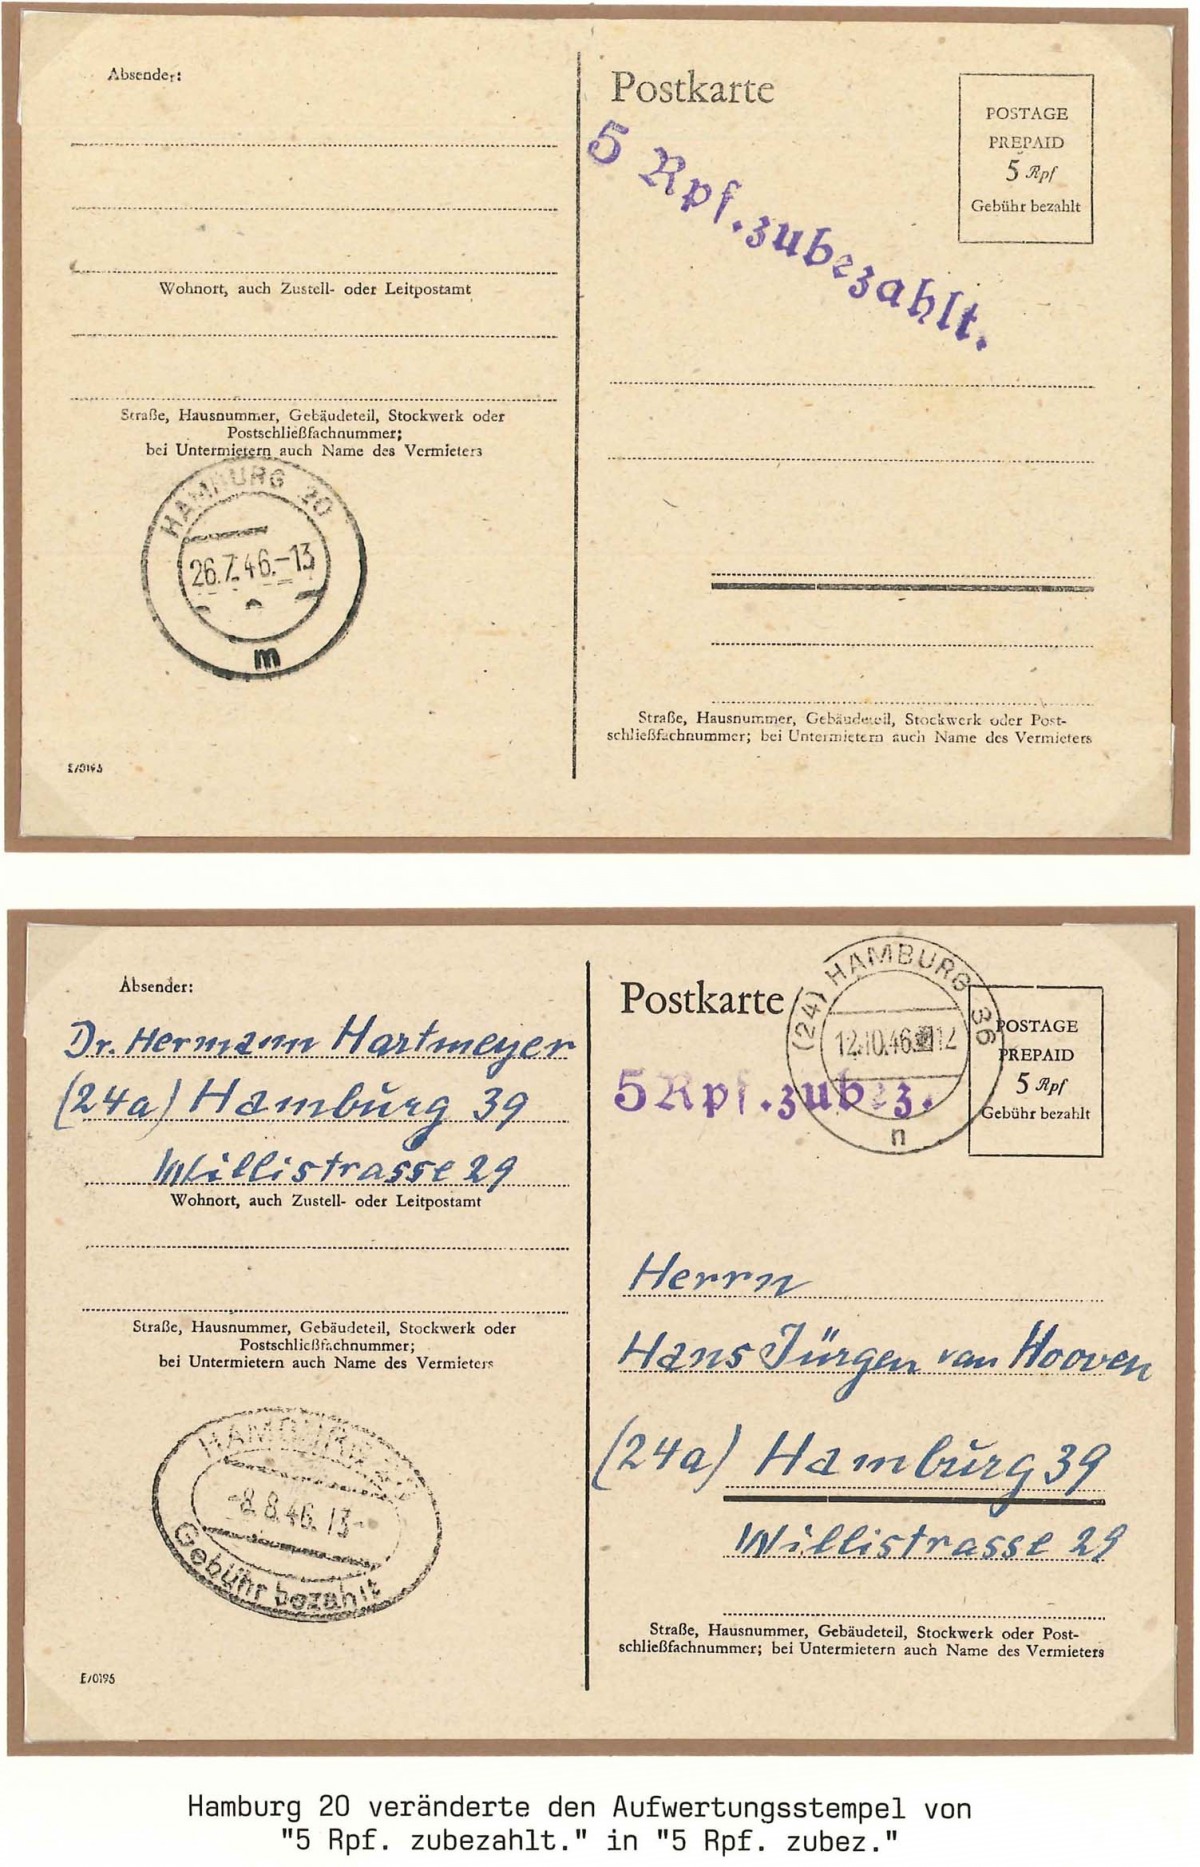 Absender:
Wohnort, auch Zustell- oder Leitpostamt
Straße, Hausnummer, Gebäudeteil, Stockwerk oder
Postschließfachnummer;
bei Untermietern auch Name des Vermieters
HAMBURG 20
26.7.46.-13
m
E/0195
Postkarte
POSTAGE
PREPAID
5 Rpf
Gebühr bezahlt
5 Rpf. zubezahlt.
Straße, Hausnummer, Gebäudeteil, Stockwerk oder Post-
schließfachnummer; bei Untermietern auch Name des Vermieters
Absender:
Dr. Hermann Hartmeyer
(24a) Hamburg 39
Willistrasse 29
Wohnort, auch Zustell- oder Leitpostamt
Straße, Hausnummer, Gebäudeteil, Stockwerk oder
Postschließfachnummer;
bei Untermietern auch Name des Vermieters
HAMBURG 20
-8.8.46.13-
Gebühr bezahlt
E/0195
Postkarte
(24) HAMBURG 36
12.10.46 12
n
POSTAGE
PREPAID
5 Rpf
Gebühr bezahlt
5 Rpf. zubez.
Herrn
Hans Jürgen van Hooven
(24a) Hamburg 39
Willistrasse 29
Straße, Hausnummer, Gebäudeteil, Stockwerk oder Post-
schließfachnummer; bei Untermietern auch Name des Vermieters
Hamburg 20 veränderte den Aufwertungsstempel von
"5 Rpf. zubezahlt." in "5 Rpf. zubez."